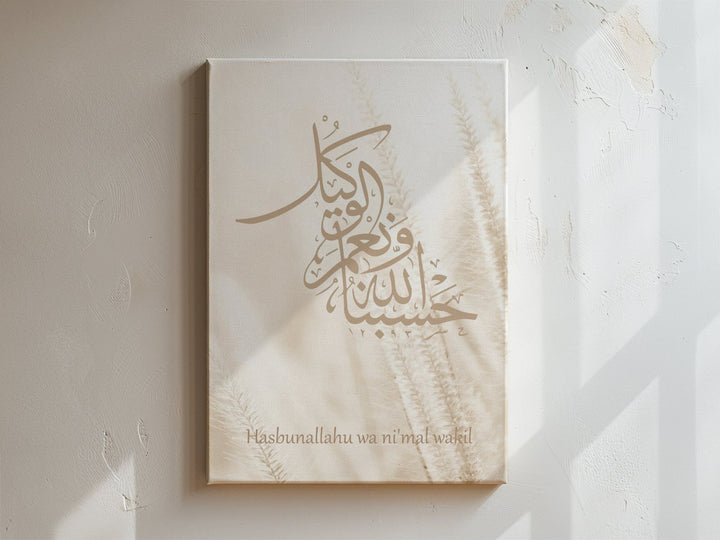 حسبنا الله
ونعم
الوكيل
Hasbunallahu wa ni'mal wakil